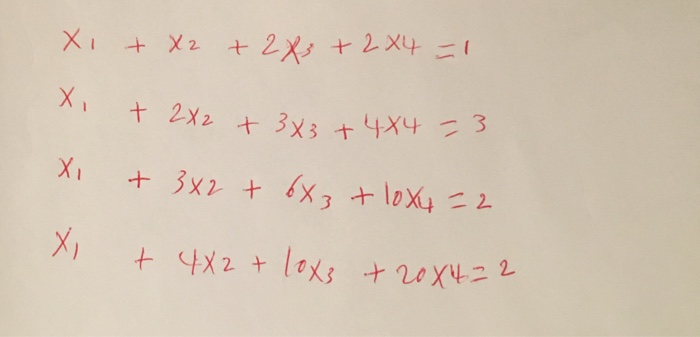 x1 + x2 + 2x3 + 2x4 = 1
x1 + 2x2 + 3x3 + 4x4 = 3
x1 + 3x2 + 6x3 + 10x4 = 2
x1 + 4x2 + 10x3 + 20x4 = 2